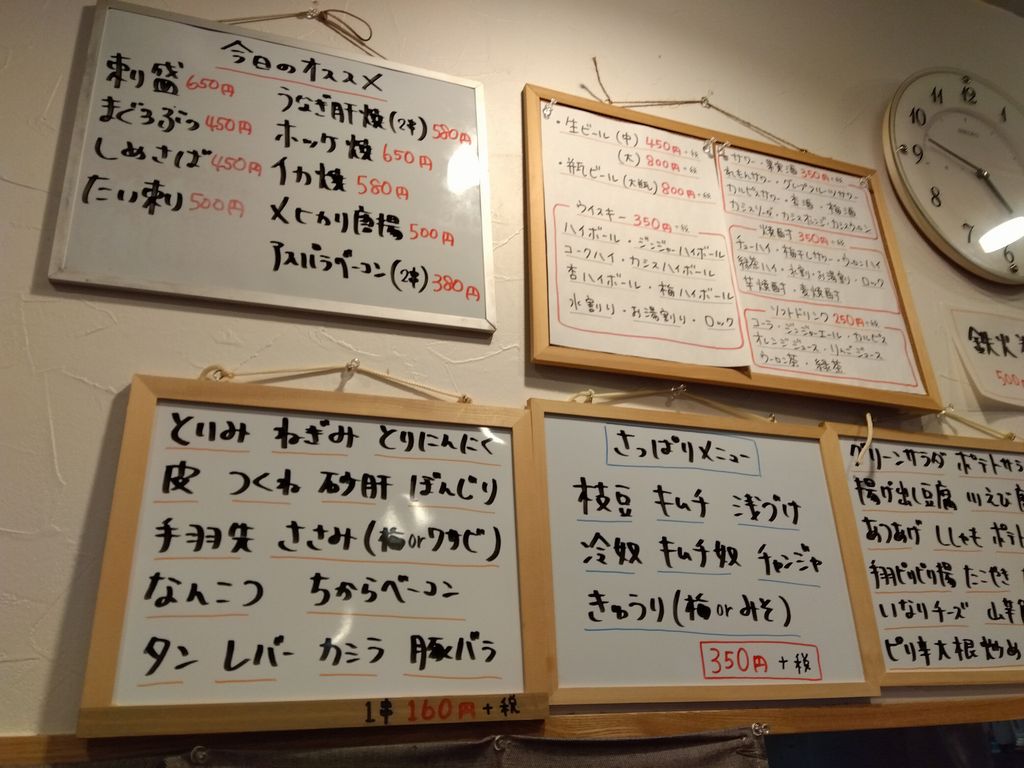 今日のオススメ
刺り盛 650円
まぐろぶつ 450円
しめさば 450円
たい刺り 500円
うなぎ肝焼(2串) 580円
ホッケ焼 650円
イカ焼 580円
メヒカリ唐揚 500円
アスパラベーコン(2串) 380円
・生ビール (中) 450円+税
(大) 800円+税
・瓶ビール (大瓶) 800円+税
ウイスキー 350円+税
ハイボール・ジンジャーハイボール
コークハイ・カシスハイボール
杏ハイボール・梅ハイボール
水割り・お湯割り・ロック
サワー・果実酒 350円+税
れもんサワー・グレープフルーツサワー
カルピスサワー・杏酒・梅酒
カシスソーダ・カシスオレンジ・カシスウーロン
焼酎 350円+税
チューハイ・梅干しサワー・ウーロンハイ
緑茶ハイ・水割・お湯割・ロック
芋焼酎・麦焼酎
ソフトドリンク 250円+税
コーラ・ジンジャーエール・カルピス
オレンジジュース・りんごジュース
ウーロン茶・緑茶
11 12 1
10
9
8
7 6
SEIKO
鉄火
500
とりみ ねぎみ とりにんにく
皮 つくね 砂肝 ぼんじり
手羽先 ささみ(梅orワサビ)
なんこつ ちからベーコン
タン レバー カシラ 豚バラ
1串 160円+税
さっぱりメニュー
枝豆 キムチ 浅づけ
冷奴 キムチ奴 チャンジャ
きゅうり(梅orみそ)
350円+税
グリーンサラダ ポテトサラ
揚げ出し豆腐 川えび
あつあげ ししゃも ポテト
手羽ピリピリ揚 たこやき
いなりチーズ 山芋
ピリ辛大根炒め